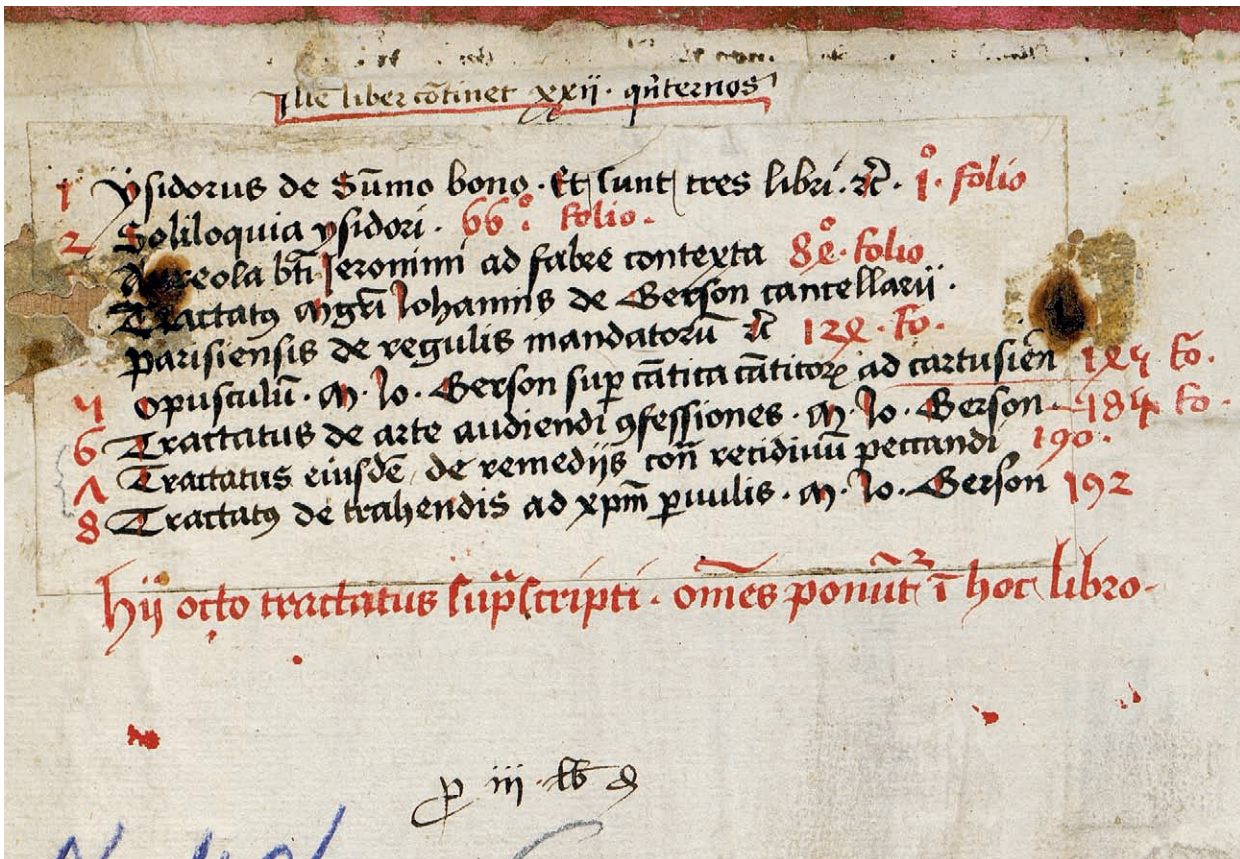 Iste liber cōtinet xxij · qn̄ternos
1 ysidorus de Sūmo bono · Et sunt tres libri · ⁊c̄ · 1º · folio
2 Soliloquia ysidori · 66º · folio ·
Aureola bt̄i Jeronimi ad fabre contexta 8º · folio
Tractatꝯ mgr̄i Johannis de Gerson cancellarij ·
parisiensis de regulis mandatorū ⁊c̄ · fo ·
opusculū · M · Jo · Gerson suꝑ cātica cāticoꝝ ad cartusiēn fo ·
6 Tractatus de arte audiendi ꝯfessiones · M · Jo · Gerson fo ·
ʌ Tractatus eiusdē de remedijs con̄ recidiuū peccandi 190 ·
8 Tractatꝯ de trahendis ad xp̄m ꝑuulis · M · Jo · Gerson 192
hij octo tractatus sup̄scripti · om̄es ponūt² ī hoc libro ·
ꝓ iij · lb̄ ₰